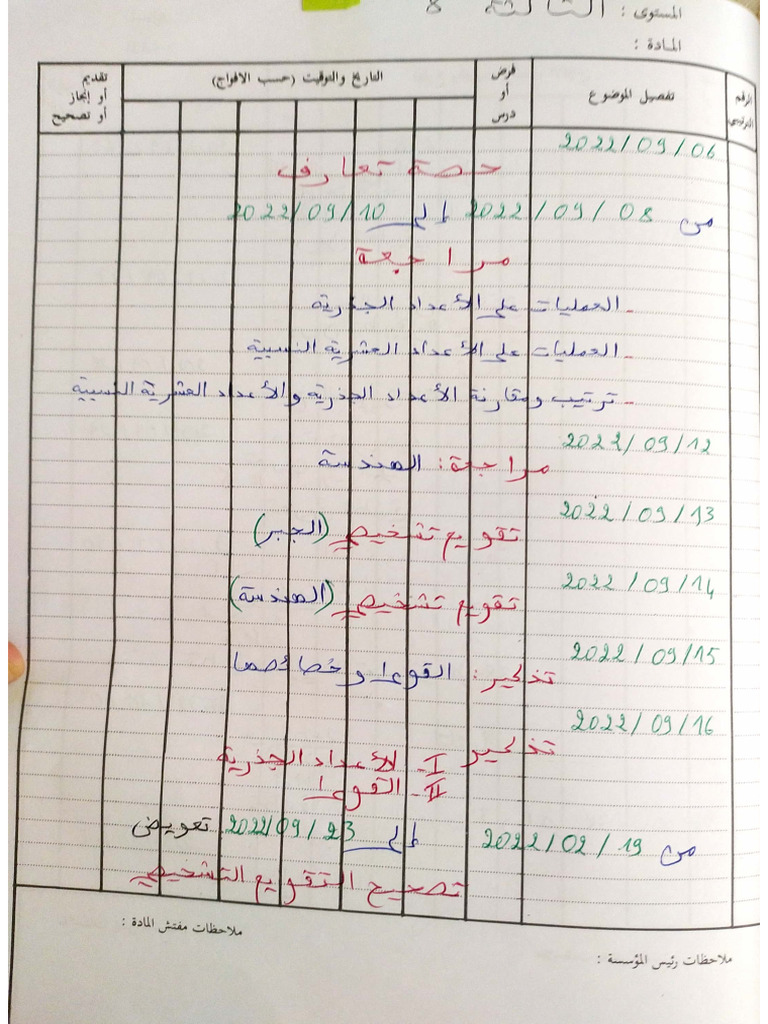 المستوى : الثالثة 8
المادة :
الرقم الترتيبي
تفصيل الموضوع
فرض أو درس
التاريخ والتوقيت (حسب الافواج)
تقديم أو إنجاز أو تصحيح
2022/09/06
حصة تعارف
من 2022/09/08 إلى 2022/09/10
مراجعة
- العمليات على الأعداد الجذرية
- العمليات على الأعداد العشرية النسبية
- ترتيب ومقارنة الأعداد الجذرية والأعداد العشرية النسبية
2022/09/12
مراجعة: الهندسة
2022/09/13
تقويم تشخيصي (الجبر)
2022/09/14
تقويم تشخيصي (الهندسة)
2022/09/15
تذكير: القوى وخصائصها
2022/09/16
تذكير I- الأعداد الجذرية
II- القوى
من 2022/02/19 إلى 2022/09/23 تعويض
تصحيح التقويم التشخيصي
ملاحظات مفتش المادة :
ملاحظات رئيس المؤسسة :